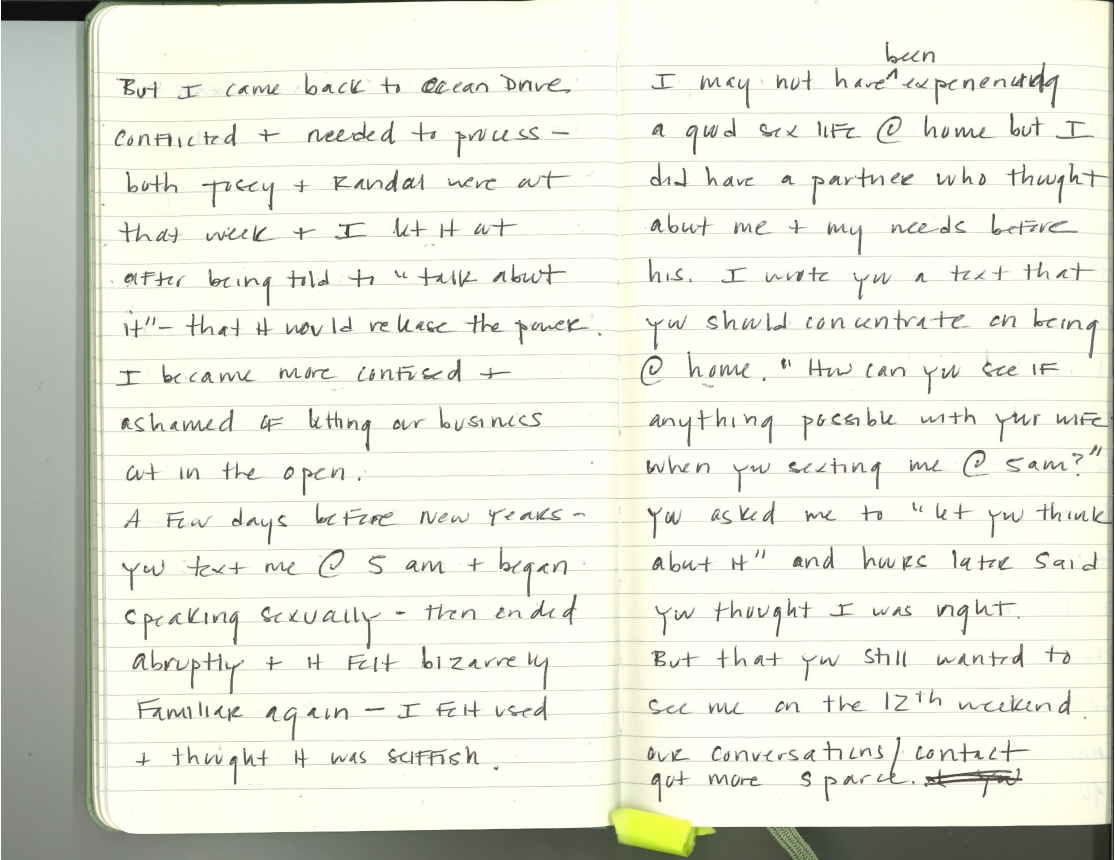 But I came back to Ocean Drive
conflicted + needed to process -
both Tosey + Randal were out
that week + I let it out
after being told to "talk about
it" - that it would release the power.
I became more confused +
ashamed of letting our business
out in the open.
A few days before New Years -
you text me @ 5 am + began
speaking sexually - then ended
abruptly + it felt bizarrely
familiar again - I felt used
+ thought it was selfish.
been
I may not have ^ experiencing
a good sex life @ home but I
did have a partner who thought
about me + my needs before
his. I wrote you a text that
you should concentrate on being
@ home. "How can you see if
anything possible with your wife
when you sexting me @ 5am?"
You asked me to "let you think
about it" and hours later said
you thought I was right.
But that you still wanted to
see me on the 12th weekend.
our conversations / contact
got more sparce.